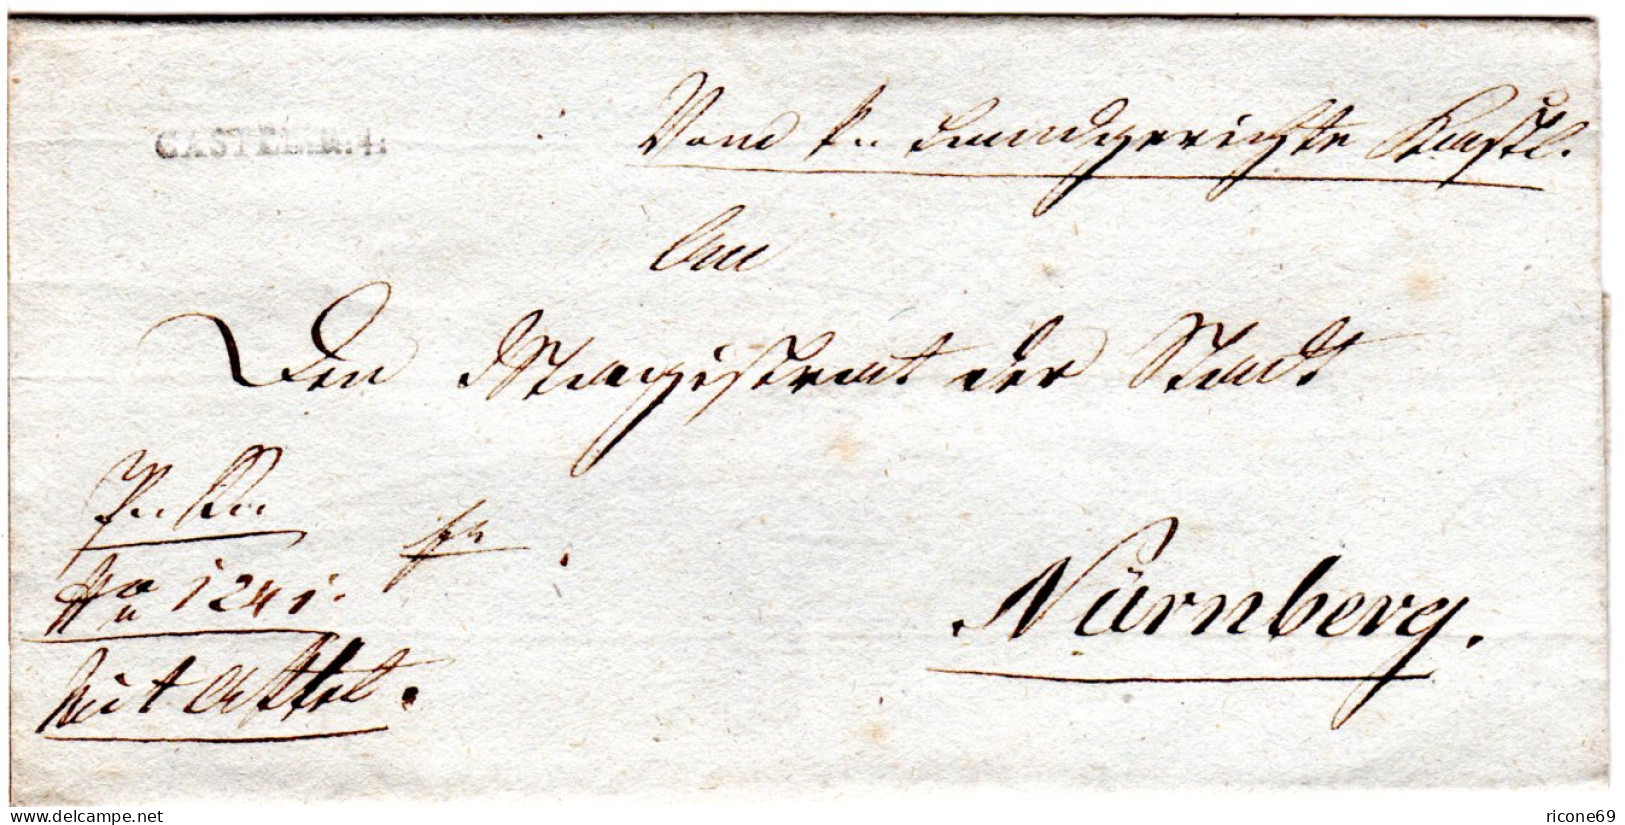 CASTEL.R.4:
Vom k. Landgerichte Kastl.
An
Den Magistrat der Stadt
Nürnberg.
No 1241.
mit Akt
delcampe.net
ricone69